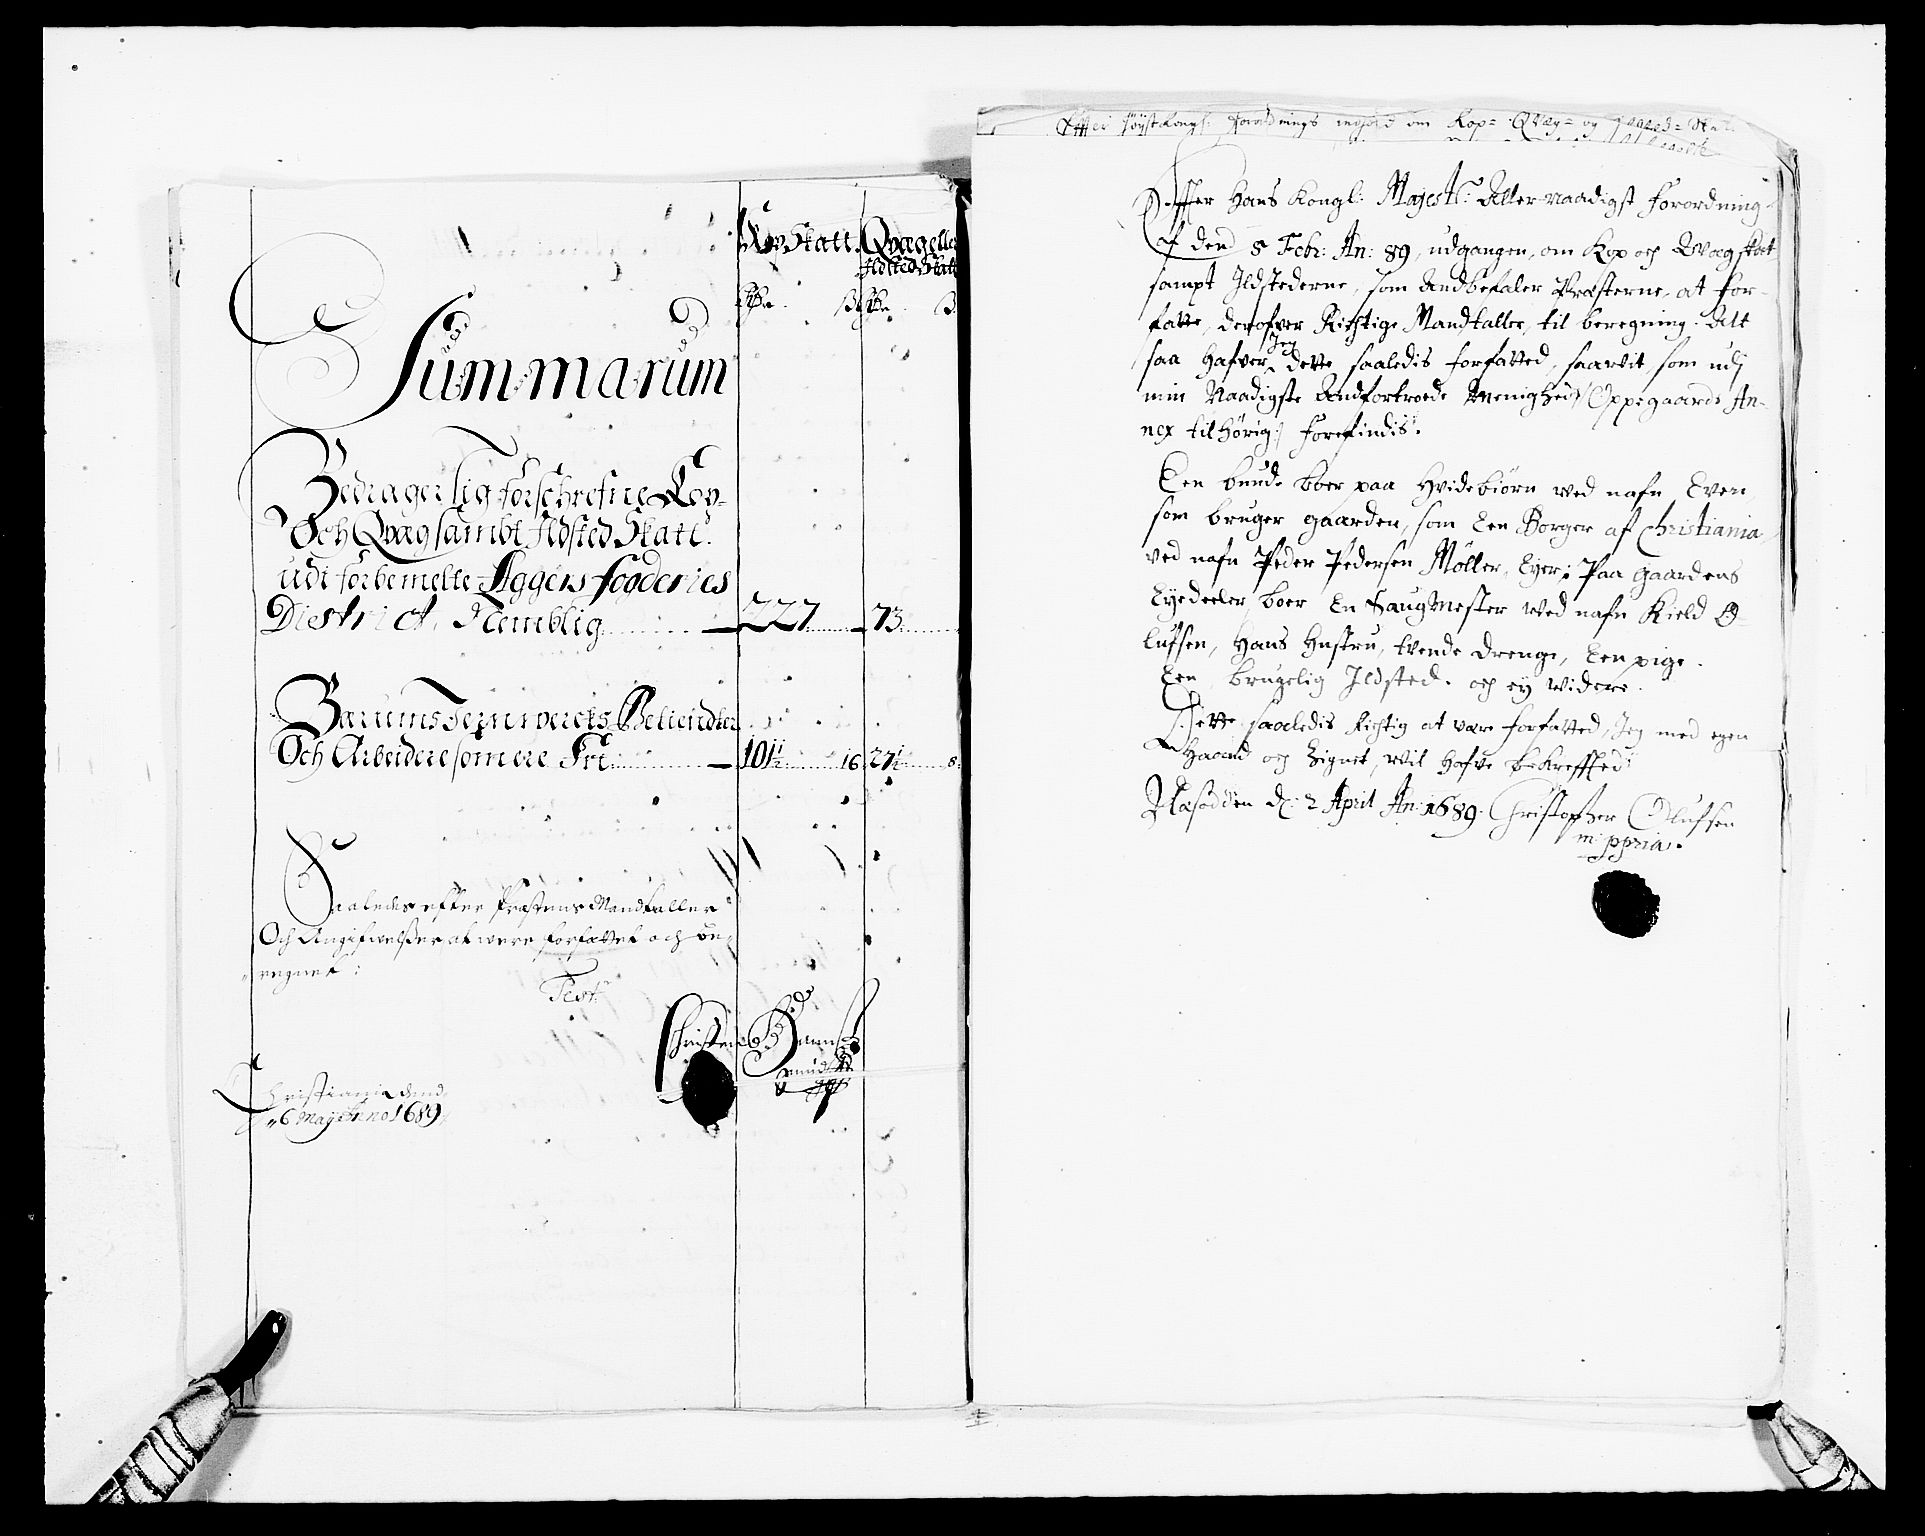 Kop Skatt. Qvæg eller
Ildsted Skatt
Summarum
Bedrager sig forschrefne Kop-
Och Qvæg sambt Ildsted Skatt
udi forbemelte Aggers fogderies
District, Nemblig 227 73
Bærums Jernwercks Betiendter
Och Arbeidere som ere Fri 101½ 16 27½ 8
Saaledes effter Præstens Mandtaller
Och Angifwelßer at were forfattet och be-
regnet:
Test:
Christen
Christiania dend
6 Maij Anno 1689
Effter Kongl: forordnings indhold om Kop- Qvæg- og
Effter Hans Kongl: Majestz: Aller-naadigst forordning
af den 5 Febr: An: 89, udgangen, om Kop och Qvæg skat
sampt Ildstederne, som Andbefaler Præsterne, at for-
fatte, derofver Rigtige Mandtaller, til beregning. Alt
saa hafver Jeg dette saaledis forfatted, saavit, som udj
min Naadigste Andfortroede Menighed /: Oppegaards An-
nex tilhørig :/ forefindis.
Een bunde boer paa Hvidebiørn ved nafn Even
som bruger gaarden, som Een Borger af Christiania
ved nafn Peder Pedersen Møller, Eyer; Paa gaardens
Eyedeeler boer En Saugmester ved nafn Kield O-
lufsen, Hans Hustru, tvende drenge, Een pige.
Een brugelig Ildsted. och ey videre.
Dette saaledis Rigtig at være forfatted, Jeg med egen
Haand och Zignet, vil hafve bekreffted
Næsodden d: 2 April An: 1689. Christopher Olufsen
m: ppria.